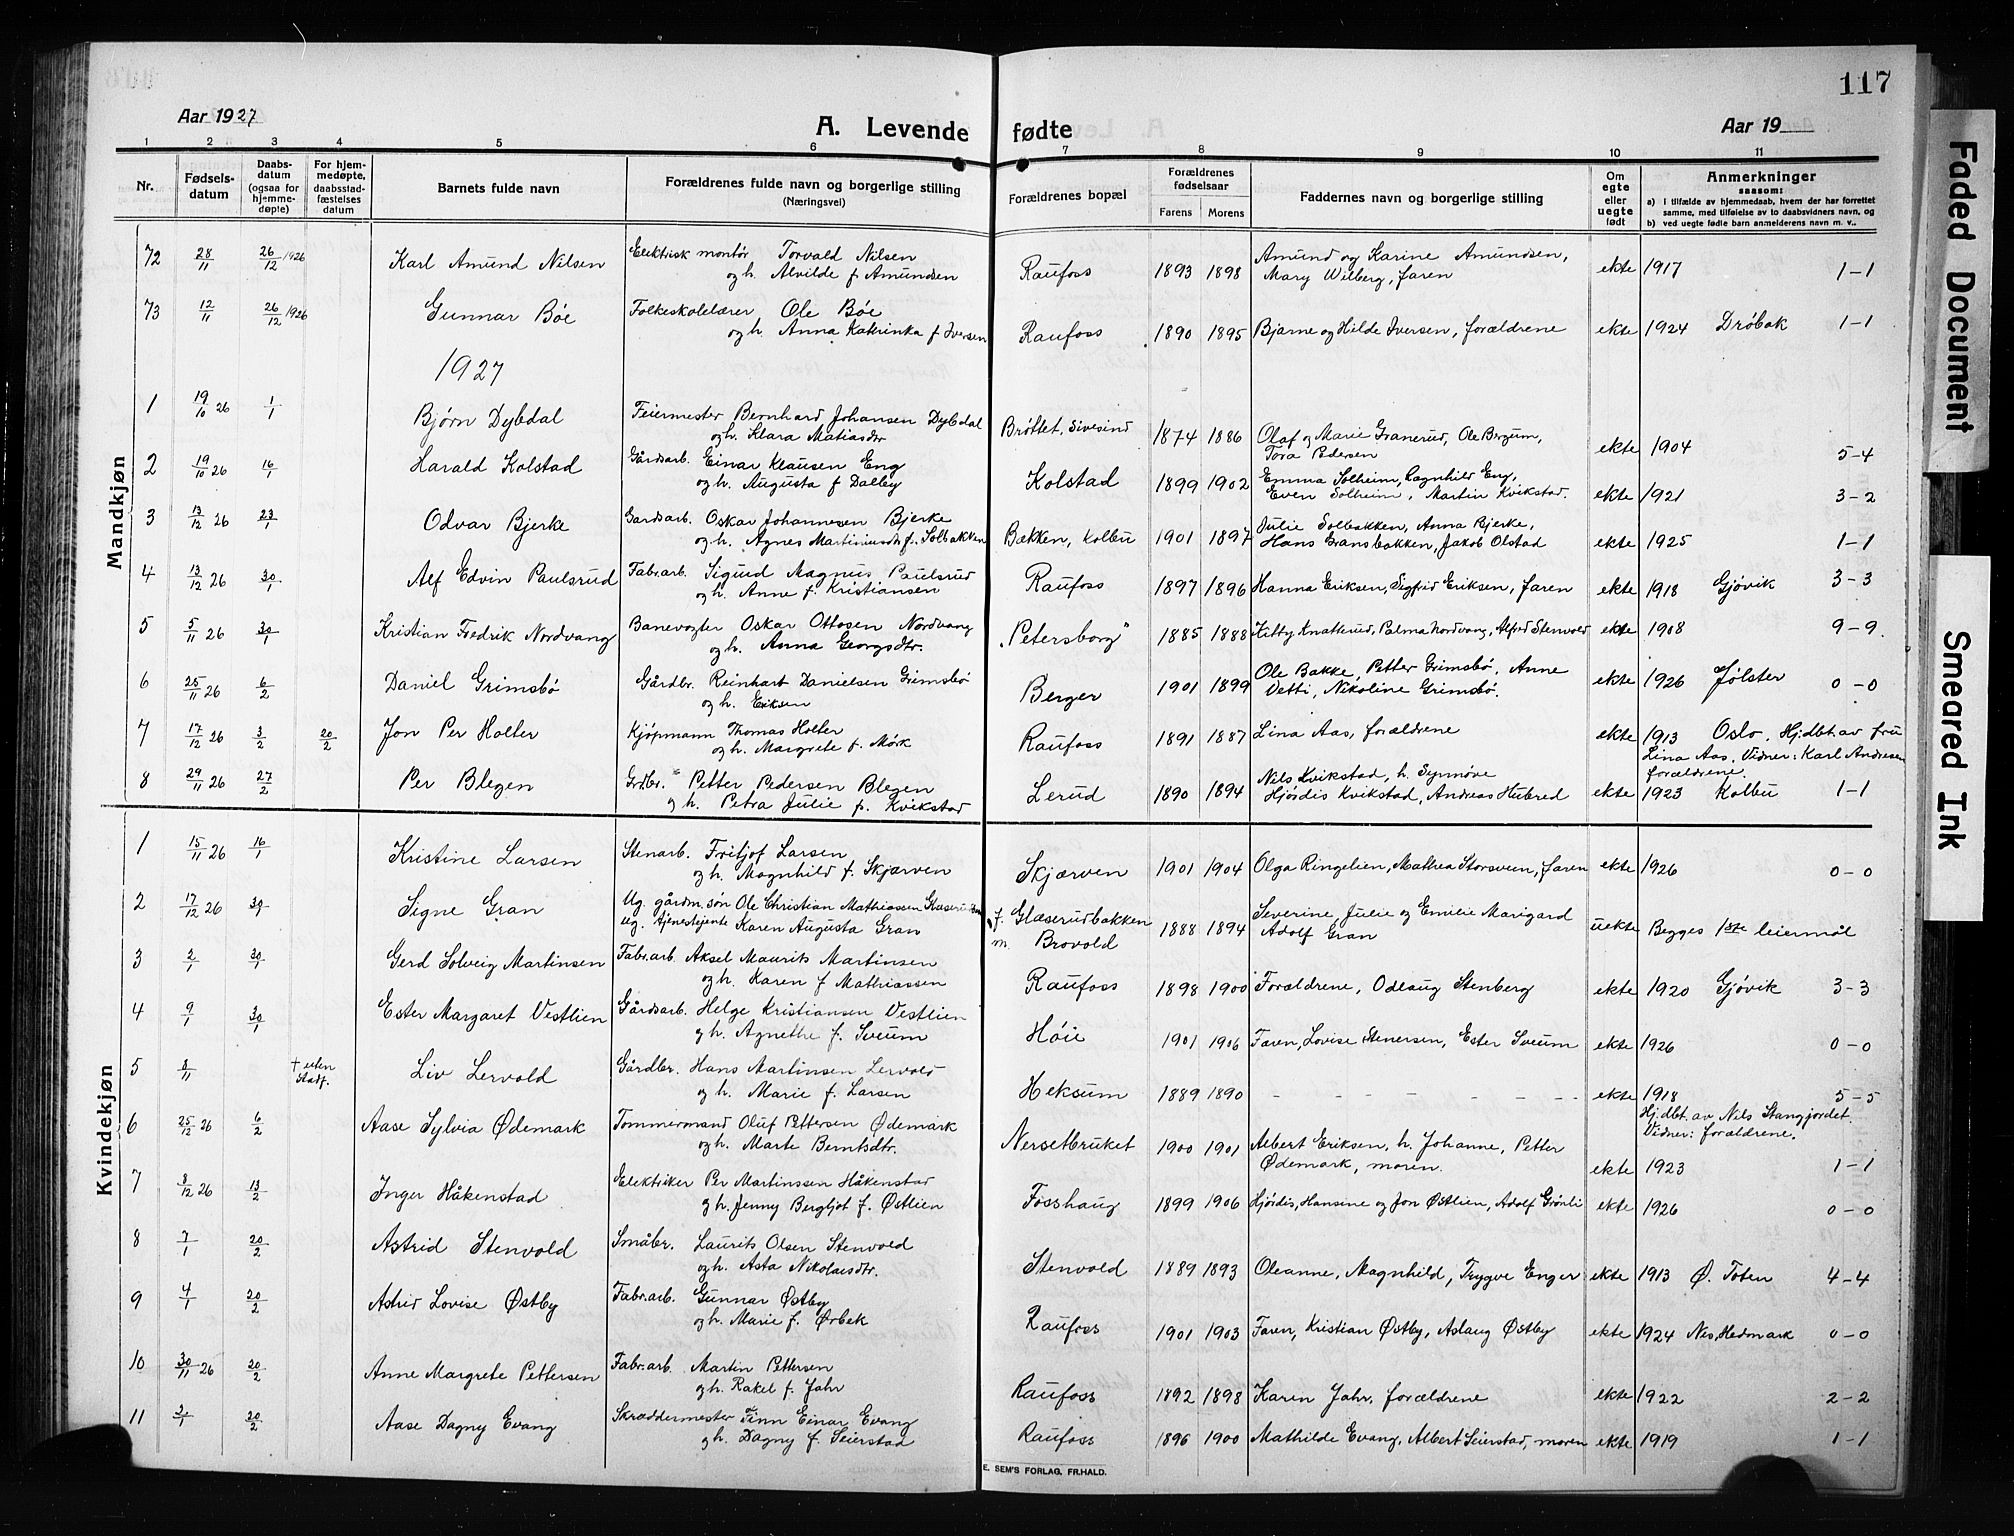 117
Aar 1927
A. Levende fødte
Aar 19
1 2 3 4 5 6 7 8 9 10 11
Nr.
Fødsels-
datum
Daabs-
datum
(ogsaa for
hjemme-
døpte)
For hjem-
medøpte,
daabsstad-
fæstelses
datum
Barnets fulde navn
Forældrenes fulde navn og borgerlige stilling
(Næringsvei)
Forældrenes bopæl
Forældrenes
fødselsaar
Farens. Morens
Faddernes navn og borgerlige stilling
Om
egte
eller
uegte
født
Anmerkninger
saasom:
a) i tilfælde av hjemmedaab, hvem der har forrettet
samme, med tilføielse av to daabsvidners navn, og
b) ved uegte fødte barn anmelderens navn m. v..
Mandkjøn
72 28/11 26/12 1926 Karl Amund Nilsen Elektrisk montör Torvald Nilsen
og h. Alvilde f Amundsen Raufoss 1893 1898 Amund og Karine Amundsen,
Mary Wilberg, faren ekte 1917 1-1
73 12/11 26/12 1926 Gunnar Bøe Folkeskolelærer Ole Bøe
og h. Anna Katrinka f Iversen Raufoss 1890 1895 Bjarne og Hilde Iversen, forældrene ekte 1924 Drøbak 1-1
1927
1 19/10 26 1/1 Bjørn Dybdal Feiermester Bernhard Johansen Dybdal
og h. Klara Matiasdtr Brøttet, Sivesind 1874 1886 Olaf og Marie Granerud, Ole Bergum,
Tora Pedersen ekte 1904 5-4
2 19/10 26 16/1 Harald Kolstad Gårdsarb. Einar Klausen Eng
og h. Augusta f Dalby Kolstad 1899 1902 Emma Solheim, Ragnhild Eng,
Even Solheim, Martin Kvikstad. ekte 1921 3-2
3 13/12 26 23/1 Odvar Bjerke Gardsarb. Oskar Johannesen Bjerke
og h. Agnes Martiniusdtr f. Solbakken Bakken, Kolbu 1901 1897 Julie Solbakken, Anna Bjerke,
Hans Gransbakken, Jakob Olstad ekte 1925 1-1
4 13/12 26 30/1 Alf Edvin Paulsrud Fabr.arb. Sigurd Magnus Paulsrud
og h. Anne f. Kristiansen Raufoss 1897 1896 Hanna Eriksen, Sigfrid Eriksen, faren ekte 1918 Gjøvik 3-3
5 5/11 26 30/1 Kristian Fredrik Nordvang Banevogter Oskar Ottosen Nordvang
og h. Anna Georgsdtr. „Petersborg" 1885 1888 Kitty Knatterud, Palma Nordvang, Alfred Stenvold ekte 1908 9-9.
6 25/11 26 6/2 Daniel Grimsbø Gårdbr. Reinhart Danielsen Grimsbø
og h. Eriksen Berger 1901 1899 Ole Bakke, Petter Grimsbø, Anne
Vetti, Nikoline Grimsbø. ekte 1926 Jølster 0-0
7 17/12 26 3/2 20/2 Jon Per Holter Kjøpmann Thomas Holter
og h. Margrete f. Mörk Raufoss 1891 1887 Lina Aas, forældrene ekte 1913 Oslo. Hj.dbt av fru
Lina Aas. Vidner: Karl Andresen
forældrene.
8 29/11 26 27/2 Per Blegen Grdbr. Petter Pedersen Blegen
og h. Petra Julie f. Kvikstad Lerud 1890 1894 Nils Kvikstad, h. Synnöve
Hjördis Kvikstad, Andreas Hubred ekte 1923 Kolbu 1-1
Kvindekjøn
1 15/11 26 16/1 Kristine Larsen Stenarb. Fritjof Larsen
og h. Magnhild f. Skjærven Skjærven 1901 1904 Olga Ringelien, Mathea Storsveen, faren ekte 1926 0-0
2 17/12 26 30/1 Signe Gran Ug. gårdm. søn Ole Christian Mathiassen
ug. tjenestejente Karen Augusta Gran f. Glæserudbakken
m. Brovold 1888 1894 Severine, Julie og Emilie Marigard
Adolf Gran uekte Begges 1ste leiermål
3 2/1 30/1 Gerd Solveig Martinsen Fabr.arb. Aksel Maurits Martinsen
og h. Karen f Mathiassen Raufoss 1898 1900 Forældrene, Odlaug Stenberg ekte 1920 Gjøvik 3-3
4 9/1 30/1 Ester Margaret Vestlien Gårdsarb. Helge Kristiansen Vestlien
og h. Agnethe f. Sveum Høie 1901 1906 Faren, Lovise Stenersen, Ester Sveum ekte 1926 0-0
5 8/11 † uten
stadf. Liv Lervold Gårdbr. Hans Martinsen Lervold
og h. Marie f. Larsen Heksum 1889 1890 - - - - - - - ekte 1918 5-5
Hj.dbt. av Nils Stangjordet.
Vidner: forældrene.
6 25/12 26 6/2 Aase Sylvia Ødemark Tømmermand Oluf Pettersen Ødemark
og h. Marte Berntsdtr. Nersetbruket 1900 1901 Albert Eriksen, h. Johanne, Petter
Ødemark, moren. ekte 1923 1-1
7 8/12 26 13/2 Inger Håkenstad Elektriker Per Martinssen Håkenstad
og h. Jenny Bergljot f. Østlien Fosshaug 1899 1906 Hjördis, Hansine og Jon Østlien, Adolf Grønli ekte 1926 0-0
8 7/1 20/2 Astrid Stenvold Småbr. Laurits Olsen Stenvold
og h. Asta Nikolaisdtr. Stenvold 1889 1893 Oleanne, Magnhild, Trygve Enger ekte 1913 Ø. Toten 4-4
9 4/1 20/2 Astrid Lovise Østby Fabr.arb. Gunnar Østby
og h. Marie f. Ørbek Raufoss 1901 1903 Faren, Kristian Østby, Aslaug Østby ekte 1924 Nes, Hedmark 0-0
10 30/11 26 20/2 Anne Margrete Pettersen Fabr.arb. Martin Pettersen
og h. Rakel f. Jahr Raufoss 1892 1898 Karen Jahr, forældrene ekte 1922 2-2
11 2/1 20/2 Aase Dagny Evang Skræddermester Finn Einar Evang
og h. Dagny f. Seierstad Raufoss 1896 1900 Mathilde Evang, Albert Seierstad, moren ekte 1919 1-1
E. SEM'S FORLAG. FR.HALD.
Faded Document
Smeared Ink